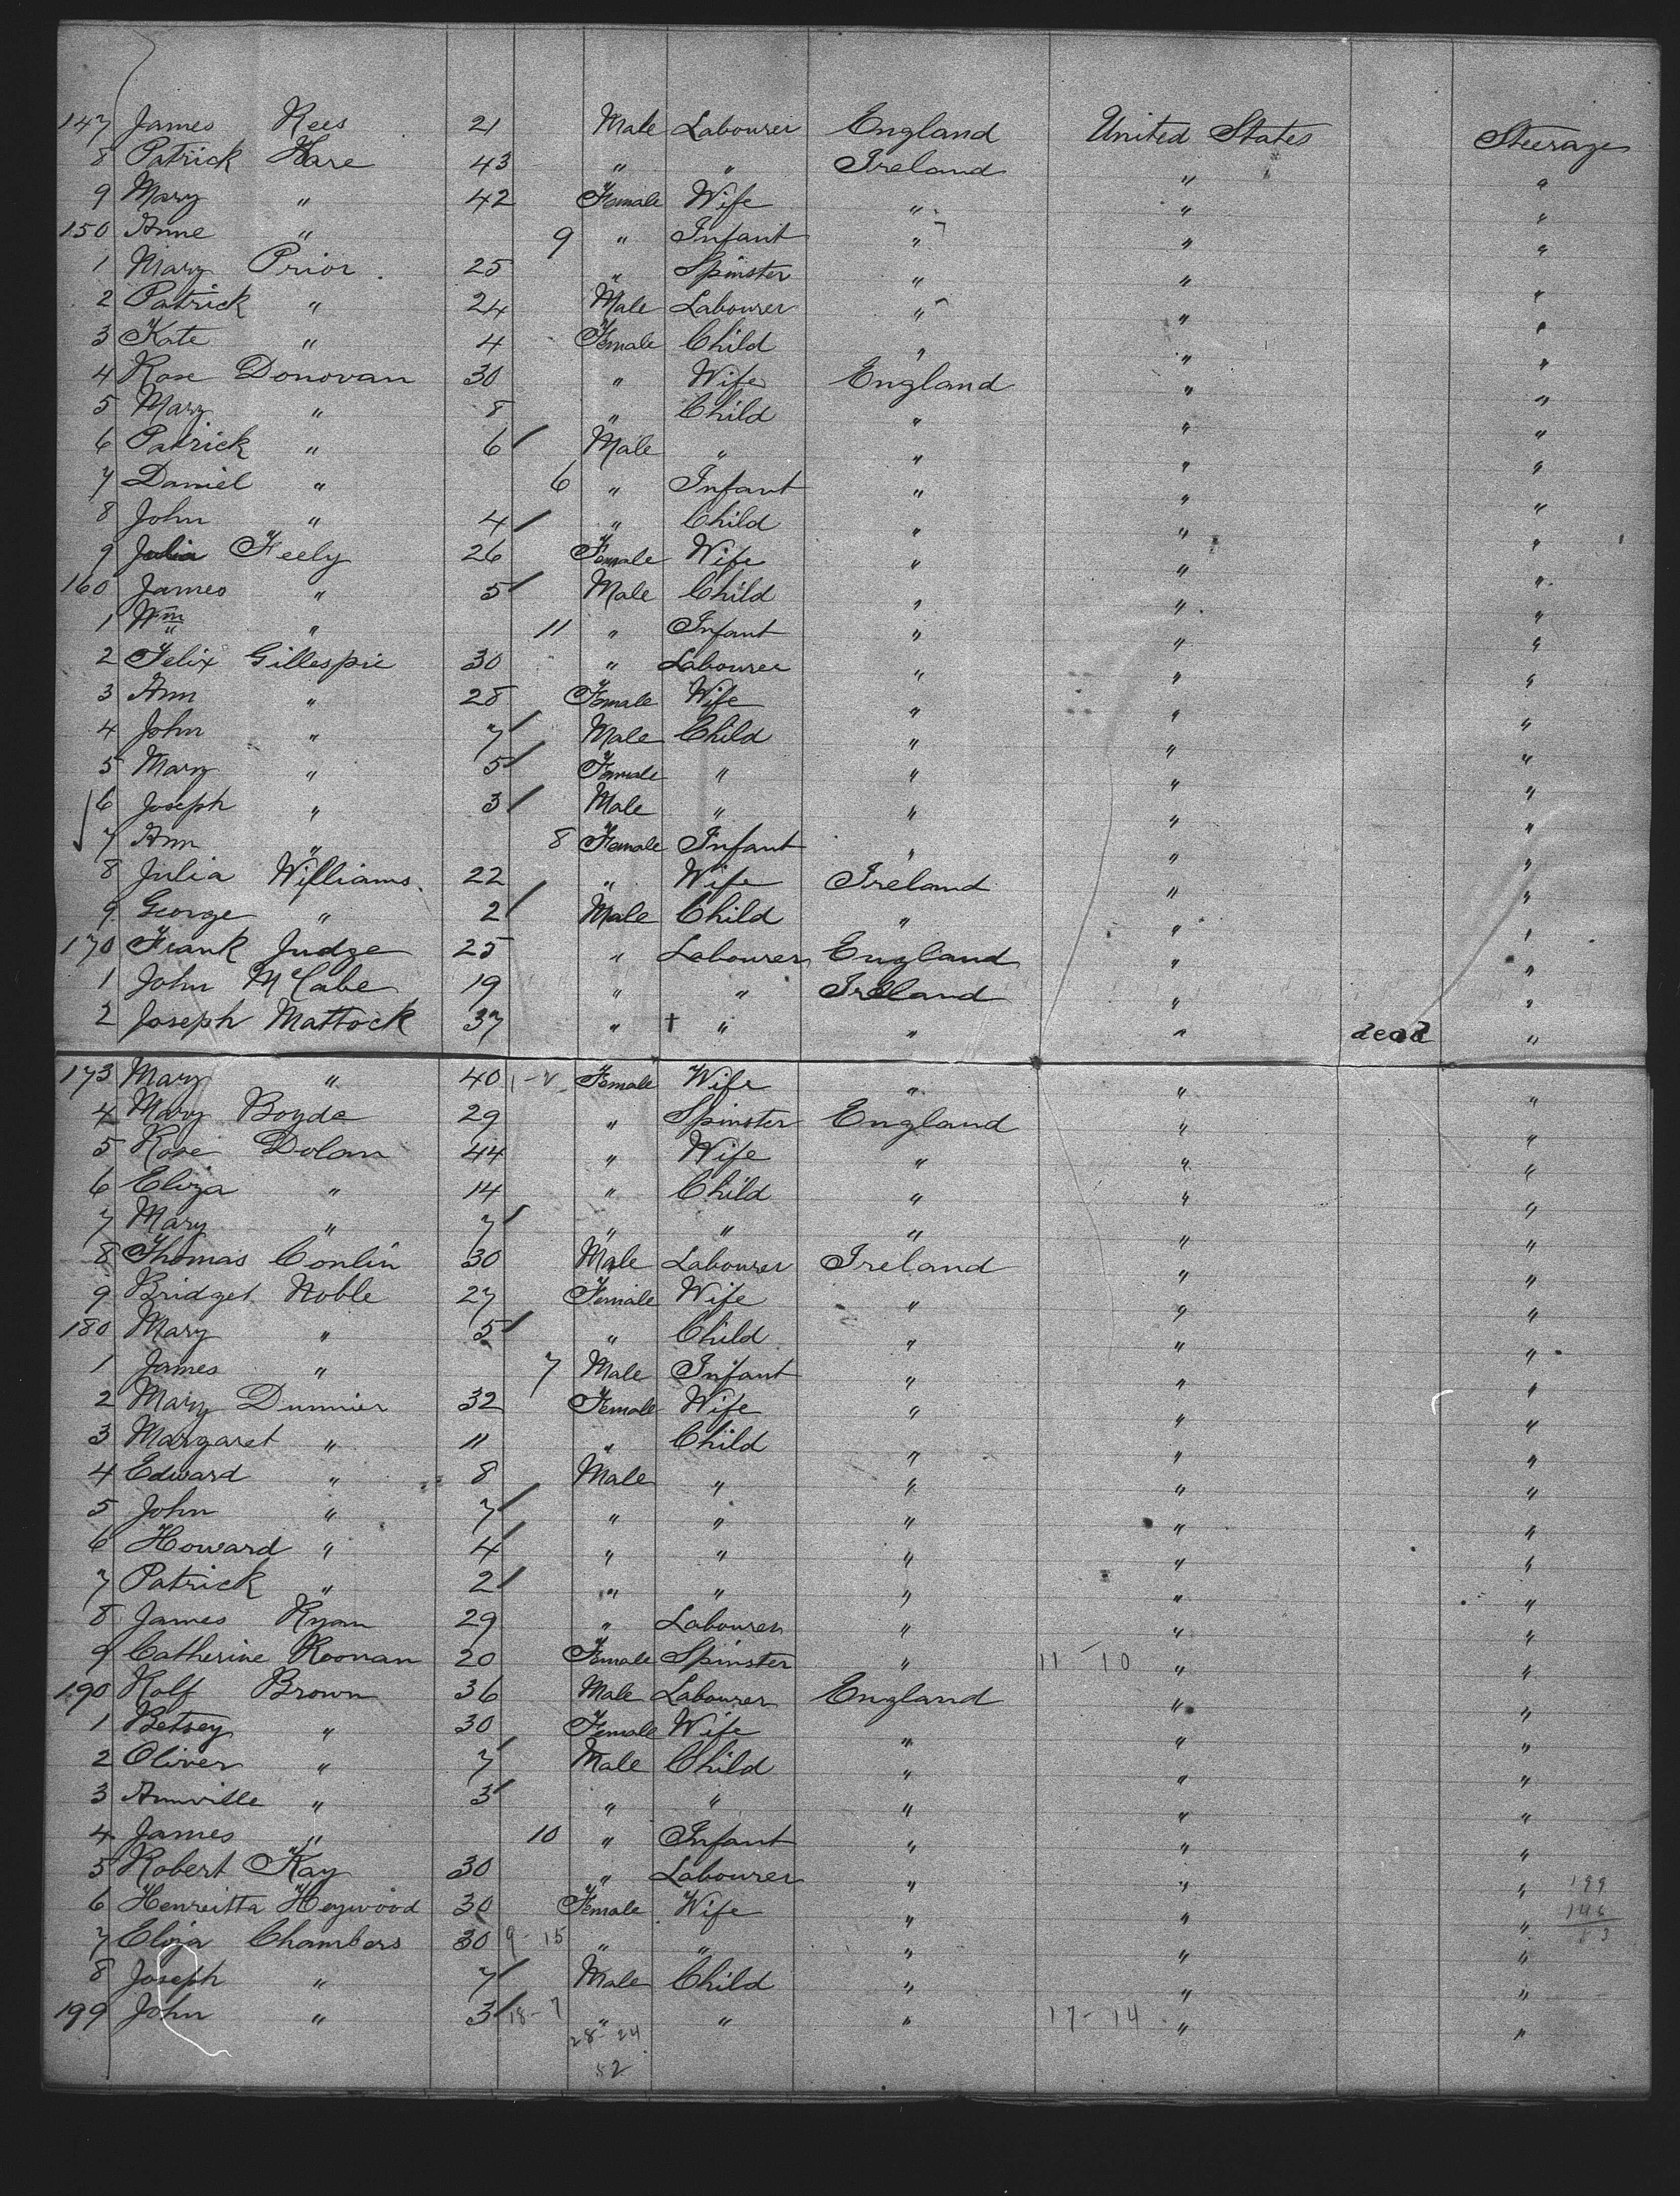 147 James Rees 21 Male Labourer England United States Steerage
8 Patrick Hare 43 " " Ireland " "
9 Mary " 42 Female Wife " " "
150 Anne " 9 " Infant " " "
1 Mary Prior 25 " Spinster " " "
2 Patrick " 24 Male Labourer " " "
3 Kate " 4 Female Child " " "
4 Rose Donovan 30 " Wife England " "
5 Mary " 8 " Child " " "
6 Patrick " 6 / Male " " " "
7 Daniel " 6 " Infant " " "
8 John " 4 / " Child " " "
9 Julia Feely 26 Female Wife " " "
160 James " 5 / Male Child " " "
1 Wm " 11 " Infant " " "
2 Felix Gillespie 30 " Labourer " " "
3 Ann " 28 Female Wife " " "
4 John " 7 / Male Child " " "
5 Mary " 5 / Female " " " "
6 Joseph " 3 / Male " " " "
7 Ann " 8 Female Infant " " "
8 Julia Williams 22 " Wife Ireland " "
9 George " 2 / Male Child " " "
170 Frank Judge 25 " Labourer England " "
1 John McCabe 19 " " Ireland " "
2 Joseph Mattock 37 " † " " " dead "
173 Mary " 40 Female Wife " " "
4 Mary Boyde 29 " Spinster England " "
5 Rose Dolan 44 " Wife " " "
6 Eliza " 14 " Child " " "
7 Mary " 7 / " " " " "
8 Thomas Conlin 30 Male Labourer Ireland " "
9 Bridget Noble 27 Female Wife " " "
180 Mary " 5 / " Child " " "
1 James " 7 Male Infant " " "
2 Mary Dunnier 32 Female Wife " " "
3 Margaret " 11 " Child " " "
4 Edward " 8 Male " " " "
5 John " 7 / " " " " "
6 Howard " 4 / " " " " "
7 Patrick " 2 / " " " " "
8 James Ryan 29 " Labourer " " "
9 Catherine Noonan 20 Female Spinster " 11 - 10 " "
190 Rolf Brown 36 Male Labourer England " "
1 Betsey " 30 Female Wife " " "
2 Oliver " 7 / Male Child " " "
3 Annville " 3 / " " " " "
4 James " 10 " Infant " " "
5 Robert Kay 30 " Labourer " " " 199
6 Henreitta Heywood 30 Female Wife " " " 146
7 Eliza Chambers 30 9 - 15 " " " " "
8 Joseph " 7 / Male Child " " "
199 John " 3 / 18 - 7 " " " 17 - 14 " "
28 - 24
52